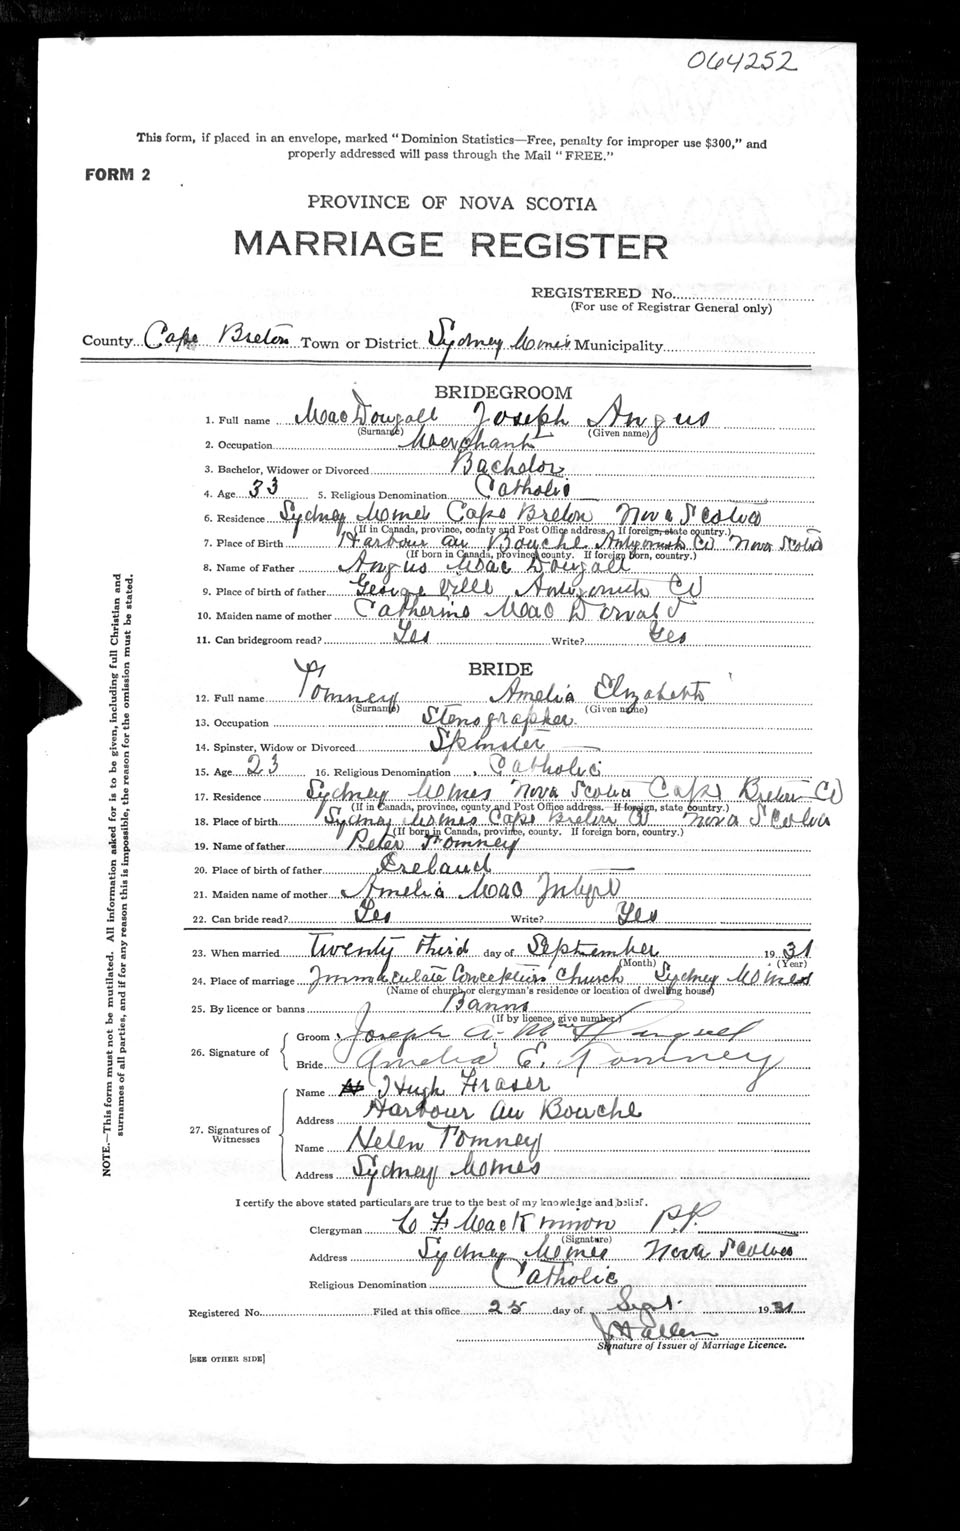 064252
This form, if placed in an envelope, marked "Dominion Statistics—Free, penalty for improper use $300," and
properly addressed will pass through the Mail "FREE."
FORM 2
PROVINCE OF NOVA SCOTIA
MARRIAGE REGISTER
REGISTERED No.
(For use of Registrar General only)
County Cape Breton Town or District Sydney Mines Municipality
BRIDEGROOM
1. Full name MacDougall Joseph Angus
(Surname) (Given name)
2. Occupation Merchant
3. Bachelor, Widower or Divorced Bachelor
4. Age 33 5. Religious Denomination Catholic
6. Residence Sydney Mines Cape Breton Nova Scotia
(If in Canada, province, county and Post Office address. If foreign, state country.)
7. Place of Birth Harbour au Bouche Antigonish Co Nova Scotia
(If born in Canada, province, county. If foreign born, country.)
8. Name of Father Angus MacDougall
9. Place of birth of father Georgeville Antigonish Co
10. Maiden name of mother Catherine MacDonald
11. Can bridegroom read? Yes Write? Yes
BRIDE
12. Full name Tomney Amelia Elizabeth
(Surname) (Given name)
13. Occupation Stenographer
14. Spinster, Widow or Divorced Spinster
15. Age 23 16. Religious Denomination Catholic
17. Residence Sydney Mines Nova Scotia Cape Breton Co
(If in Canada, province, county and Post Office address. If foreign, state country.)
18. Place of birth Sydney Mines Cape Breton Co Nova Scotia
(If born in Canada, province, county. If foreign born, country.)
19. Name of father Peter Tomney
20. Place of birth of father Ireland
21. Maiden name of mother Amelia MacIntyre
22. Can bride read? Yes Write? Yes
23. When married Twenty third day of September 1931
(Month) (Year)
24. Place of marriage Immaculate Conception Church Sydney Mines
(Name of church or clergyman's residence or location of dwelling house)
25. By licence or banns Banns
(If by licence, give number)
26. Signature of
Groom Joseph A.
Bride Amelia E. Tomney
27. Signatures of Witnesses
Name Hugh Fraser
Address Harbour au Bouche
Name Helen Tomney
Address Sydney Mines
I certify the above stated particulars are true to the best of my knowledge and belief.
Clergyman C F MacKinnon P.P.
(Signature)
Address Sydney Mines Nova Scotia
Religious Denomination Catholic
Registered No. Filed at this office 25 day of Sept. 1931
Signature of Issuer of Marriage Licence.
[SEE OTHER SIDE]
NOTE.—This form must not be mutilated. All information asked for is to be given, including full Christian and
surnames of all parties, and if for any reason this is impossible, the reason for the omission must be stated.